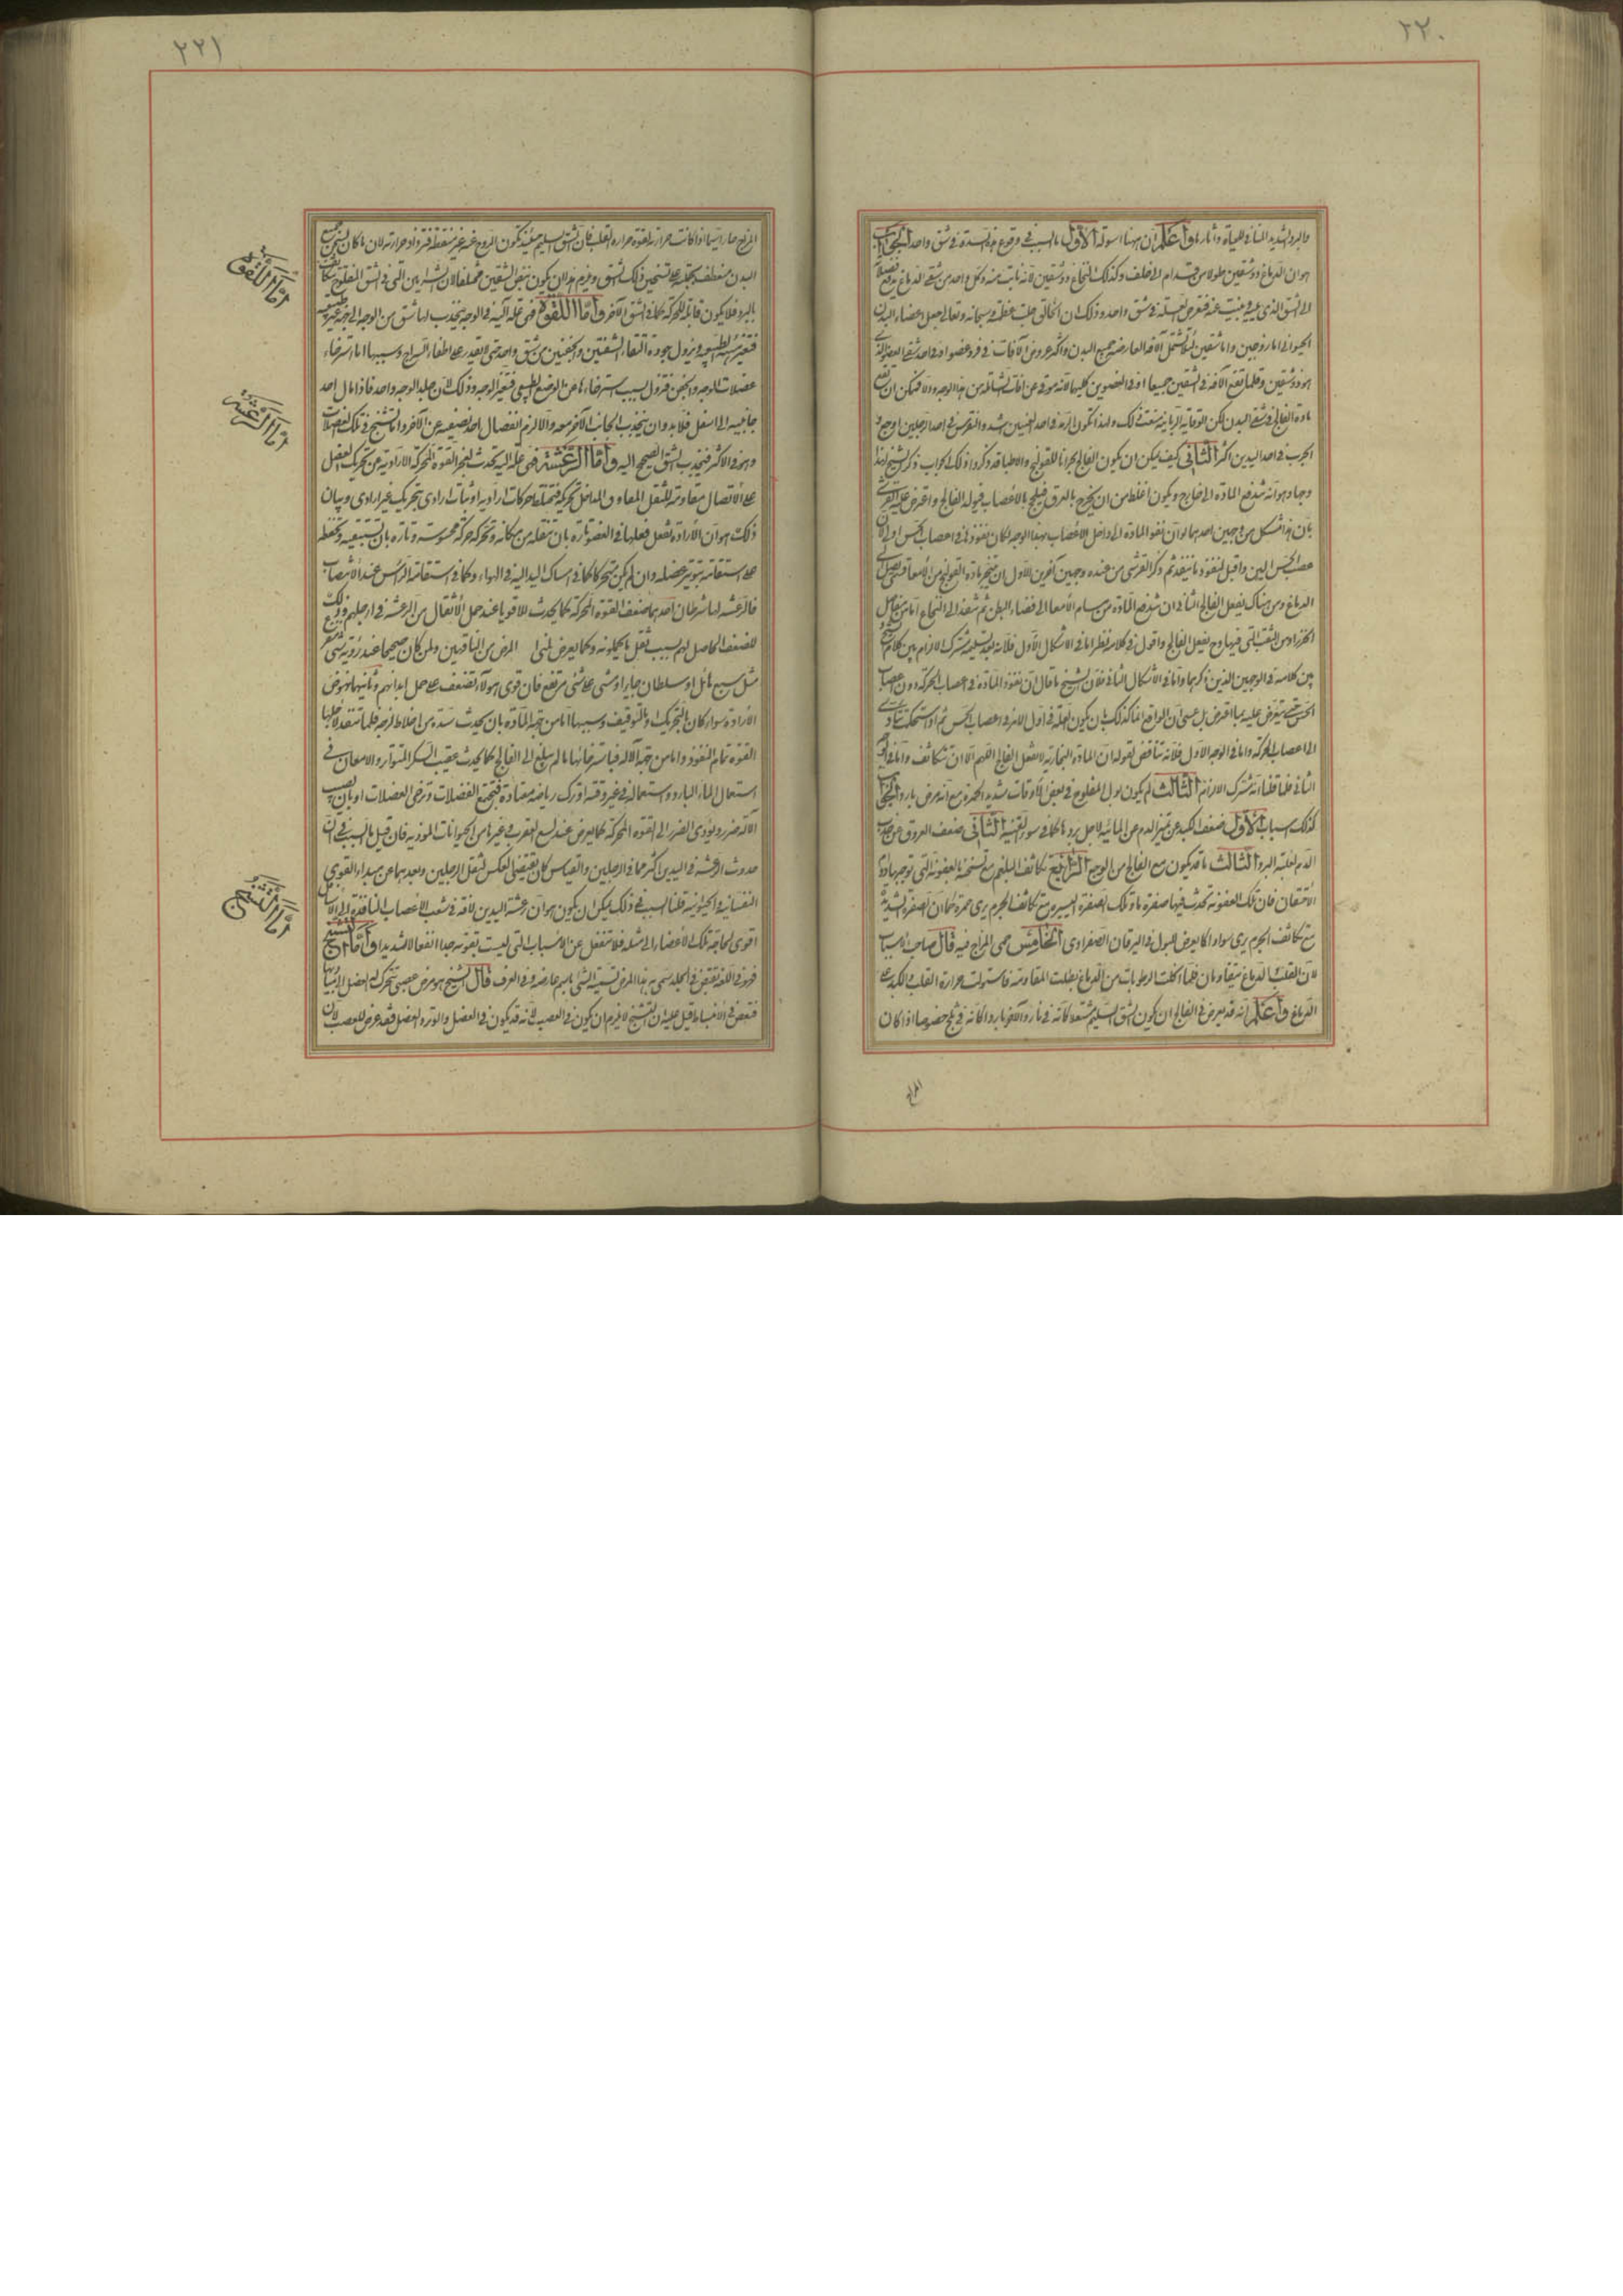 ٢٢٠
والبرد الشديد المنافي للحياة وآثارها واعلم ان ههنا اسولة الاول ما السبب في وقوع هذه السدة في شق واحد الجواب
هو ان الدماغ ذو شقين طولا من قدام الى خلف وكذلك النخاع ذو شقين لانه نابت منه وكل واحد من شقي الدماغ يدفع
الى الشق الذي يليه
الحيواني اما زوجين واما شقين لئلا تشمل الآفة العارضة جميع البدن واكثر عروض الآفات في فرد عضو او في احد شقي العضو الذي
هو ذو شقين وقلما تقع الآفة في الشقين جميعا او في العضوين كليهما
مادة الفالج في شقي البدن لكن الوقاية الربانية منعت ذلك ولهذا تكون الرمد في احد العينين اشد والنقرس في احدى الرجلين اوجع و
الجرب في احد اليدين اكثر الثاني كيف يمكن ان يكون الفالج بحرانا للقولنج والاطباء قد ذكروا ذلك الجواب ذكر الشيخ لهذا
وجها وهو انه تندفع المادة الى خارج ويكون اغلظ من ان يخرج بالعرق فيلحج بالاعصاب فيولد الفالج واعترض عليه القرشي
بان هذا مشكل من وجهين احدهما لو ان نفوذ المادة الى داخل الاعصاب بهذا الوجه لكان نفوذها في اعصاب الحس اولى لان
عصب الحس الين واقبل لنفوذ ما ينفذ ثم ذكر القرشي من عنده وجهين آخرين الاول ان تتبخر مادة القولنج من الامعاء
الدماغ ومن هناك يفعل الفالج الثاني ان تندفع المادة من مسام الامعا الى فضاء البطن ثم تنفذ الى النخاع
الخرزا ومن الثقب التي فيها وح يفعل الفالج واقول في كلامه نظر اما في الاشكال الاول فلانه بعد تسليمه مشترك الالزام بين كلام الشيخ و
بين كلامه في الوجهين الذين ذكرهما واما في الاشكال الثاني فلان الشيخ ما قال ان نفوذ المادة في اعصاب الحركة دون اعصاب
الحس حتى يتعرض عليه بما اعترض بل عسى ان الواقع انما كذلك بان يكون العلة في اول الامر في اعصاب الحس ثم اذا استحكمت
الى اعصاب الحركة واما في الوجه الاول فلانه تناقض لقوله ان المادة البخارية لا تفعل الفالج اللهم الا ان تتكاثف واما في
الثاني فلما قلنا انه مشترك الالزام الثالث لم يكون بول المفلوج في بعض الاوقات شديد الحمرة مع انه مرض بارد الجواب
لذلك اسباب الاول ضعف الكبد عن تميز الدم عن المائية لاجل برد ما كما في سوء القنية الثاني ضعف العروق عن جذب
الدم لغلبة البرد الثالث ما قد يكون مع الفالج من الوجع الرابع تكاثف البلغم مع تسخنه بالعفونة التي توجبها
الاحتقان فان تلك العفونة تحدث فيها صفرة ما وتلك الصفرة اليسيرة مع تكاثف الجرم يرى حمرة كما ان الصفرة الشديدة
مع تكاثف الجرم يرى سوادا كما يعرض للبول في اليرقان الصفراوي الخامس حمى المزاج فيه قال صاحب الاسباب
لان القلب الدماغ يتقاومان فلما كثرت الرطوبات من الدماغ بطلت المقاومة فاستولت حرارة القلب والكبد على
الدماغ واعلم انه قد يعرض في الفالج ان يكون الشق السليم مشتعلا كانه في نار والآخر باردا كانه في ثلج خصوصا اذا كان
المزاج
٢٢١
المزاج حارا سيما اذا كانت حرارته لقوة حرارة القلب فان الشق السليم حينئذ يكون الروح فيه غير
البدن
بالبرد فلا يكون قابلة للحركة كما في الشق الآخر واما اللقوة فهي علة آلية في الوجه ينجذب لها شق من الوجه الى جهة غير طبيعية
فتغير هيئة الطبيعية ويزول جودة التقاء الشفتين والجفنين من شق واحد حتى لا يقدر على اطفاء السراج وسببها اما استرخاء
عضلات الوجه والجفن فتزول بسبب استرخائها عن الوضع الطبيعي فتغير الوجه وذلك لان جلد الوجه واحد فاذا مال احد
جانبيه الى اسفل فلا بد وان ينجذب الجانب الآخر معه والا لزم انفصال احد نصفيه عن الآخر واما لتشنج في تلك العضلات
وهو في الاكثر فينجذب الشق الصحيح اليه واما الرعشة فهي علة آلية تحدث لعجز القوة المحركة الارادية عن تحريك العضل
على الاتصال مقاومة للثقل المعاوق المداخل لتحريكه فتختلط حركات ارادية او ثبات ارادي بتحريك غير ارادي وبيان
ذلك هو ان الارادة تفعل فعلها في العضو تارة بان تنقله من مكانه وتحركه حركة محسوسة وتارة بان تستبقيه وتحفظه
على استقامته بتوتير عضله وان لم يكن متحركا كما في امساك اليد اليه في الهواء وكما في استقامة الراس عند الانتصاب
فالرعشة لها شرطان احدهما ضعف القوة المحركة كما يحدث للاقوياء عند حمل الاثقال من الرعشة في ارجلهم وذلك
للضعف الحاصل لهم بسبب ثقل ما يحملونه وكما يعرض لمنى المرض من الناقهين ولمن كان صحيحا عند رؤية شيء
مثل سبع هائل او سلطان جاير او مشى على شيء مرتفع فان قوى هولاء تضعف على حمل ابدانهم وثانيهما نهوض
الارادة سواء كان بالتحريك او بالتوقيف وسببها اما من جهة المادة بان يحدث سدة من اخلاط لزجة فلما تنفذ لاجلها
القوة تمام النفوذ واما من جهة الآلة فباسترخائها ما لم يبلغ الى الفالج كما يحدث عقيب السكر المتواتر والامعان في
استعمال الماء البارد واستعماله في غير وقته او ترك رياضة معتادة فتجتمع الفضلات وترخي العضلات او بان يصيب
الآلة ضرر ويؤدى الضرر الى القوة المحركة كما يعرض عند لسع العقرب وغيرها من الحيوانات الموذية فان قيل ما السبب في ان
حدوث الرعشة في اليدين اكثر مما في الرجلين والقياس كان يقتضي العكس لثقل الرجلين وبعدهما عن مبداء القوى
النفسانية والحيوانية قلنا السبب في ذلك يمكن ان يكون هو ان رعشة اليدين لآفة في شعب الاعصاب النافذة الى الاسافل
اقوى لحاجة تلك الاعضاء الى مثله فلا تنفعل عن الاسباب التي ليست بقوية جدا انفعالا شديدا واما التشنج
فهو في اللغة تقبض في الجلد سمي به هذا المرض تسمية الشيء باسم عارضه وفي العرف قال الشيخ هو مرض عصبي تتحرك له العضل الى مباديها
فتعصى في الانبساط قيل عليه ان التشنج لا يلزم ان يكون في العصب لانه قد يكون في العضل والوتر والعضل فقد عرض للعصب لان
واما اللقوة
واما الرعشة
واما التشنج